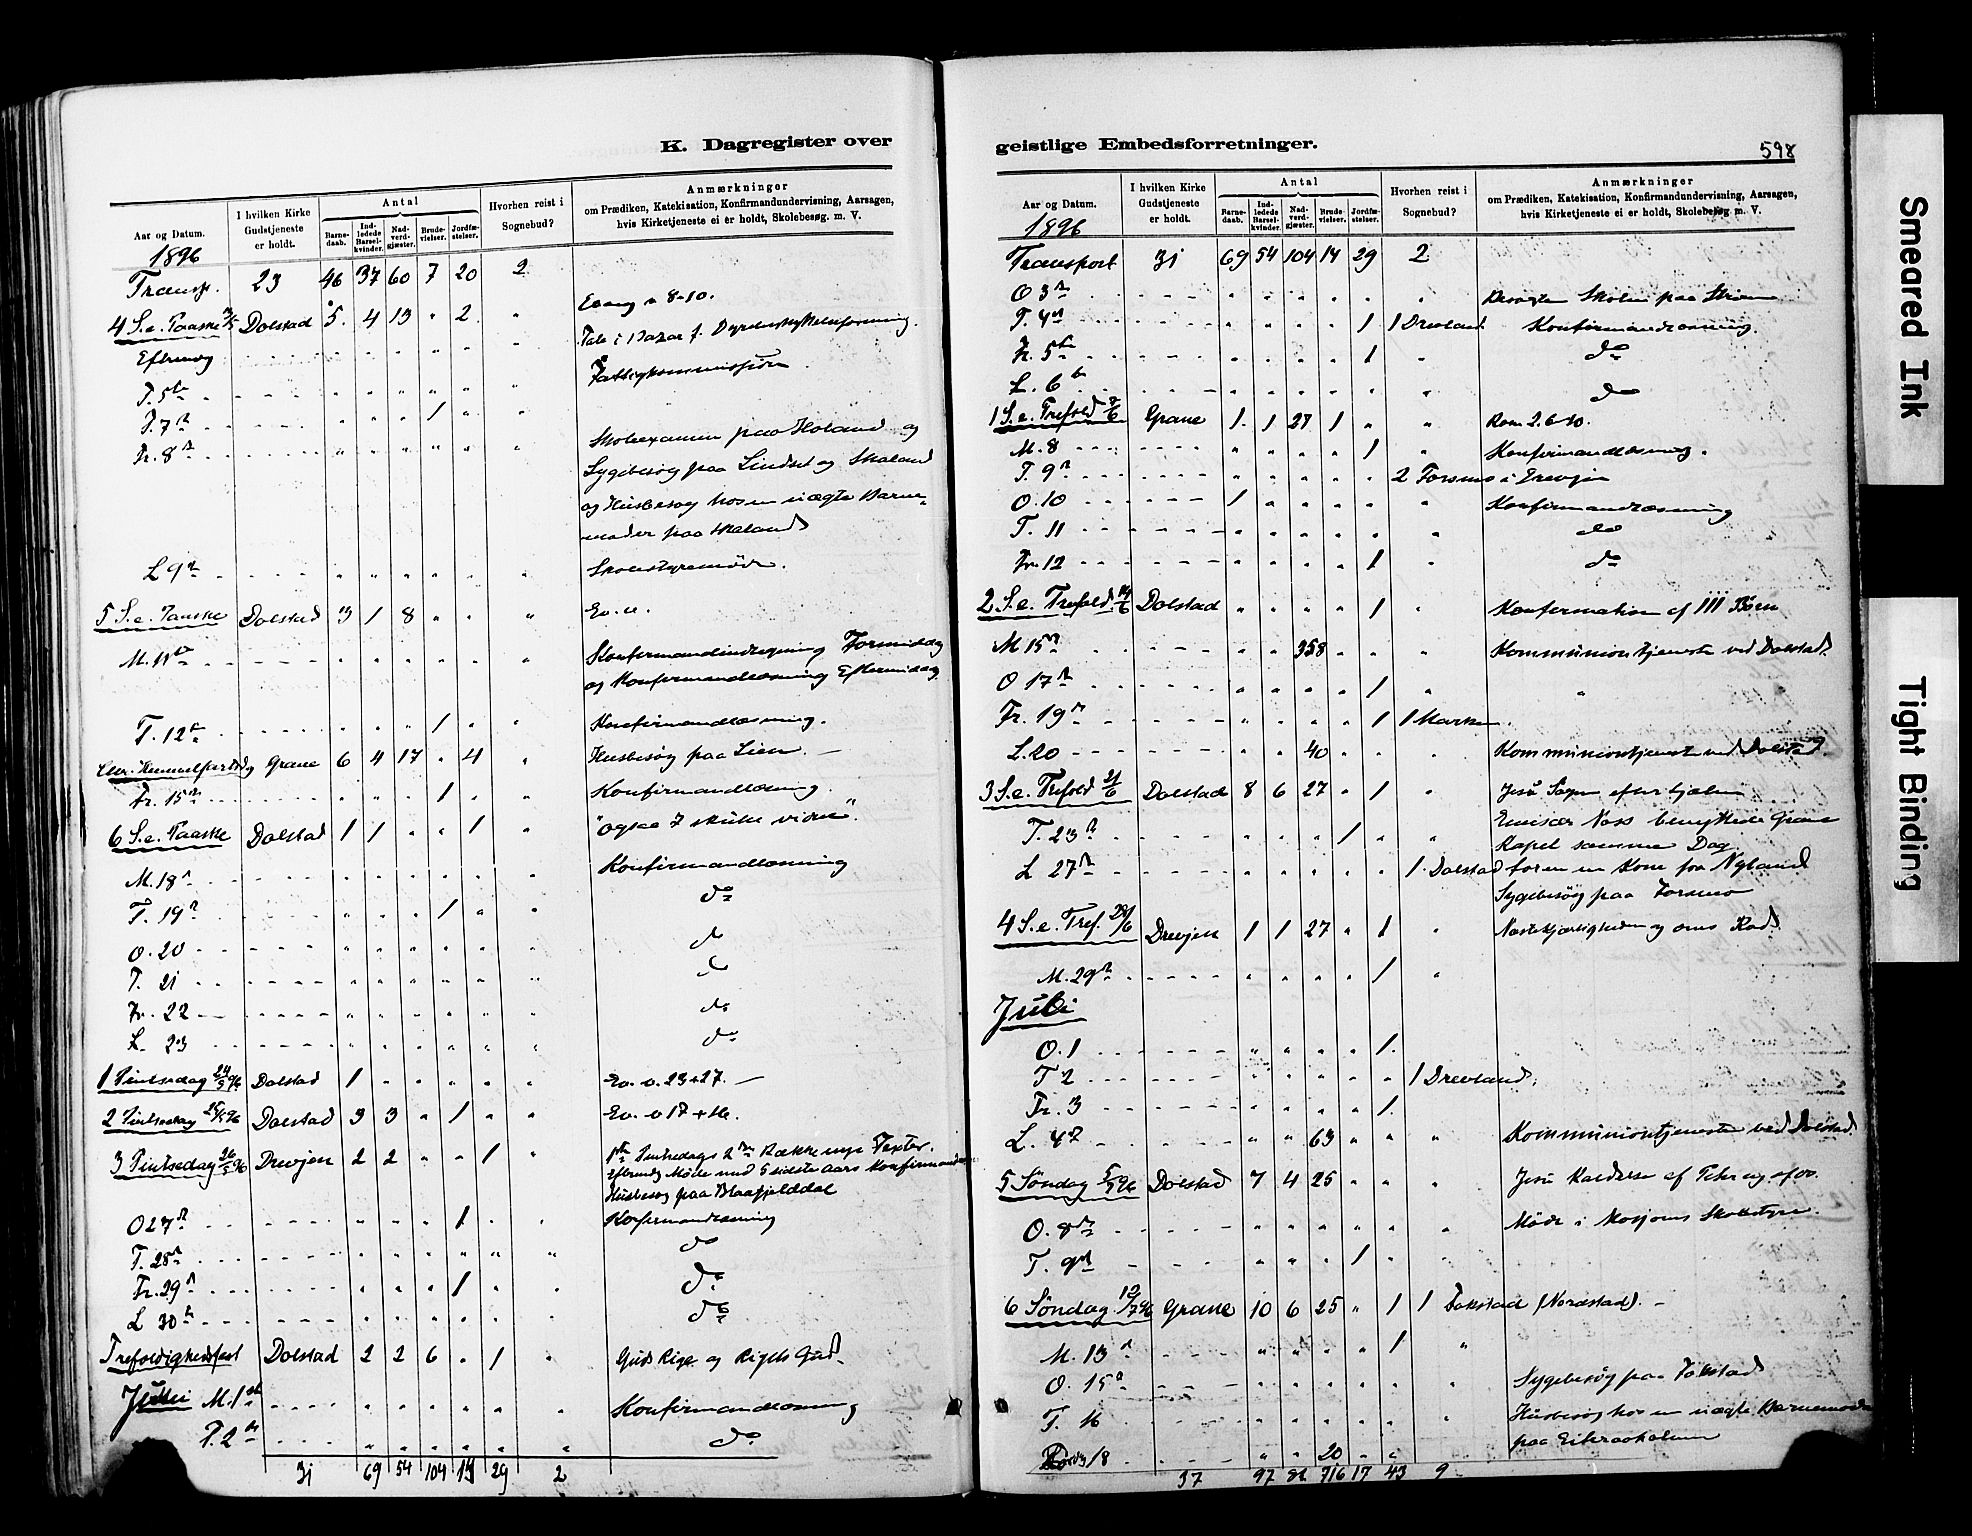 K. Dagregister over
Aar og Datum.
I hvilken Kirke Gudstjeneste er holdt.
Antal
Barnedaab.
Indledede Barselkvinder.
Nadverdgjæster.
Brudevielser.
Jordfæstelser.
Hvorhen reist i Sognebud?
Anmærkninger
om Prædiken, Katekisation, Konfirmandundervisning, Aarsagen,
hvis Kirketjeneste ei er holdt, Skolebesøg. m. V.
1896
Transp. 23 46 37 60 7 20 2
4 S. e. Paaske 3/5 Dolstad 5. 4 13 " 2. " Evang. v 8-10.
Efterm Tale i Bazar f.
T. 5te Fattigkommission.
T. 7de 1
Fr. 8de Skoleexamen paa Holand og
Sygebesøg paa Lindset og Skaland
og Husbesøg hos en uægte Barne-
moder paa Skaland
L 9de Skolestyremöde.
5 S. e. Paaske Dolstad 3 1 8 " " " Ev. v.
M. 11te Konfirmandindtegning Formiddag
og Konfirmandlæsning Eftermiddag
T. 12te 1 Konfirmandlæsning.
Chr. Himmelfartsdag Grane 6 4 17 " 4 " Husbesøg paa Lien. —
Fr. 15de 1 Konfirmandlæsning.
6 S. e. Paaske Dolstad 1 1 " " 1 " "Ogsaa I skulle vidne".
M. 18de Konfirmandlæsning
T. 19de 1 do
O. 20 do
T. 21 do
Fr. 22 do
L. 23 do
1 Pintsedag 24/5 96 Dolstad 1 Ev. v. 23+27. —
2 Pintsedag 25/5 96 Dolstad 3 3 " 1 " " Ev. v 17+16.
3 Pintsedag 26/5 96 Drevjen 2 2 " " 1 " 1ste Pintsedags 2den Række nye Texter.
Efterm Möde med 5 sidste Aars Konfirmander
Husbesøg paa Blaafjelddal
O 27de 1 Konfirmandlæsning
T. 28de do
Fr. 29de 1 do
L 30te do
Trefoldighedsfest Dolstad 2 2 6 " 1 " Guds Rige og Rigets Gud.
Juni M. 1ste Konfirmandlæsning
T. 2den do
31 69 54 104 14 29 2
geistlige Embedsforretninger.
598
Aar og Datum.
I hvilken Kirke Gudstjeneste er holdt.
Antal
Barnedaab.
Indledede Barselkvinder.
Nadverdgjæster.
Brudevielser.
Jordfæstelser.
Hvorhen reist i Sognebud?
Anmærkninger
om Prædiken, Katekisation, Konfirmandundervisning, Aarsagen,
hvis Kirketjeneste ei er holdt, Skolebesøg. m. V.
1896
Transport 31 69 54 104 14 29 2
O 3de Besøgte Skolen paa
T. 4de 1 1 Drevland Konfirmandlæsning.
Fr. 5te 1 do
L. 6te do
1 S. e. Trefold 7/6 Grane 1. 1 27 1 " " Rom. 2. 6-10.
M. 8 1 Konfirmandlæsning.
T. 9de 2 Forsmo i Drevjen
O. 10 1 Konfirmandlæsning
T. 11 do
Fr. 12 1 do
2 S. e. Trefold. 14/6 Dolstad 1 Konfirmation af 111 Börn
M 15de 358 Kommuniontjeneste ved Dolstad.
O 17de 1
Fr. 19de 1 1 Marken.
L. 20 40 Kommuniontjeneste ved Dolstad
3 S. e. Trefold 21/6 Dolstad 8 6 27 " 1 " Jesu
T. 23de 1 Emissær Næss benyttede Grane
Kapel samme Dag
L 27de 1. Dolstad for en Kone fra Nyland
Sygebesøg paa Forsmo
4 S. e. Tref. 28/6 Drevjen 1 1 27 " 1 " Næstekjærligheden og dens Raad
M. 29de 1
Juli
O. 1 1.
T 2 1 Drevland.
Fr. 3 1.
L. 4de 63 Kommuniontjeneste ved Dolstad.
5 Søndag 5/7 96 Dolstad 7 4 25 Jesu Kaldelse af Peter og
O. 8de Möde i Mosjöens Skolestyre.
T. 9de 1
6 Søndag 12/7 96 Grane 10 6 25 " 1 1 Fokstad (Nordstad). —
M. 13de 1
O. 15de Sygebesøg paa Fokstad
T. 16 Husbesøg hos en uægte Barnemoder
paa
18 20
37 97 81 716 17 43 9
Smeared Ink
Tight Binding